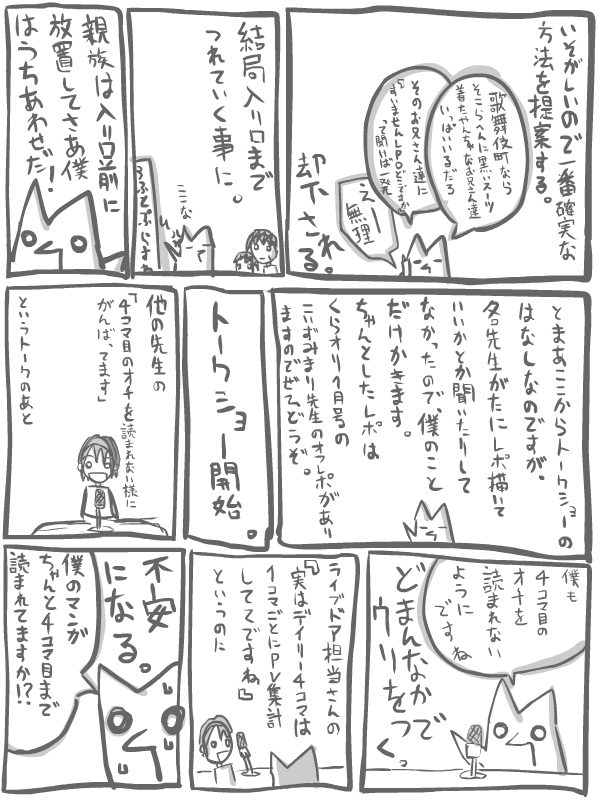 いそがしいので一番確実な
方法を提案する。
歌舞伎町なら
そこらへんに黒いスーツ
着たやんちゃなお兄さん達
いっぱいいるだろ
そのお兄さん達に
「すいませんLPOどこですか」
って聞いば一発
えー
無理
却下される。
結局入り口まで
つれていく事に。
ここな
親族は入り口前に
放置してさあ僕
はうちあわせだ!
とまあここからトークショーの
はなしなのですが、
各先生がたにレポ描いて
いいかとか聞いたりして
なかったので、僕のこと
だけかきます。
ちゃんとしたレポは
くらオリ1月号の
こいずみまり先生のオフレポがあり
ますのでぜひどうぞ。
トークショー開始。
他の先生の
「4コマ目のオチを読まれない様に
がんばってます」
というトークのあと
僕も
4コマ目の
オチを
読まれない
ように
ですね
どまんなかで
ウソをつく。
ライブドア担当さんの
「実はデイリー4コマは
1コマごとにPV集計
してるですね」
というのに
不安
になる。
僕のマンガ
ちゃんと4コマ目まで
読まれてますか!??